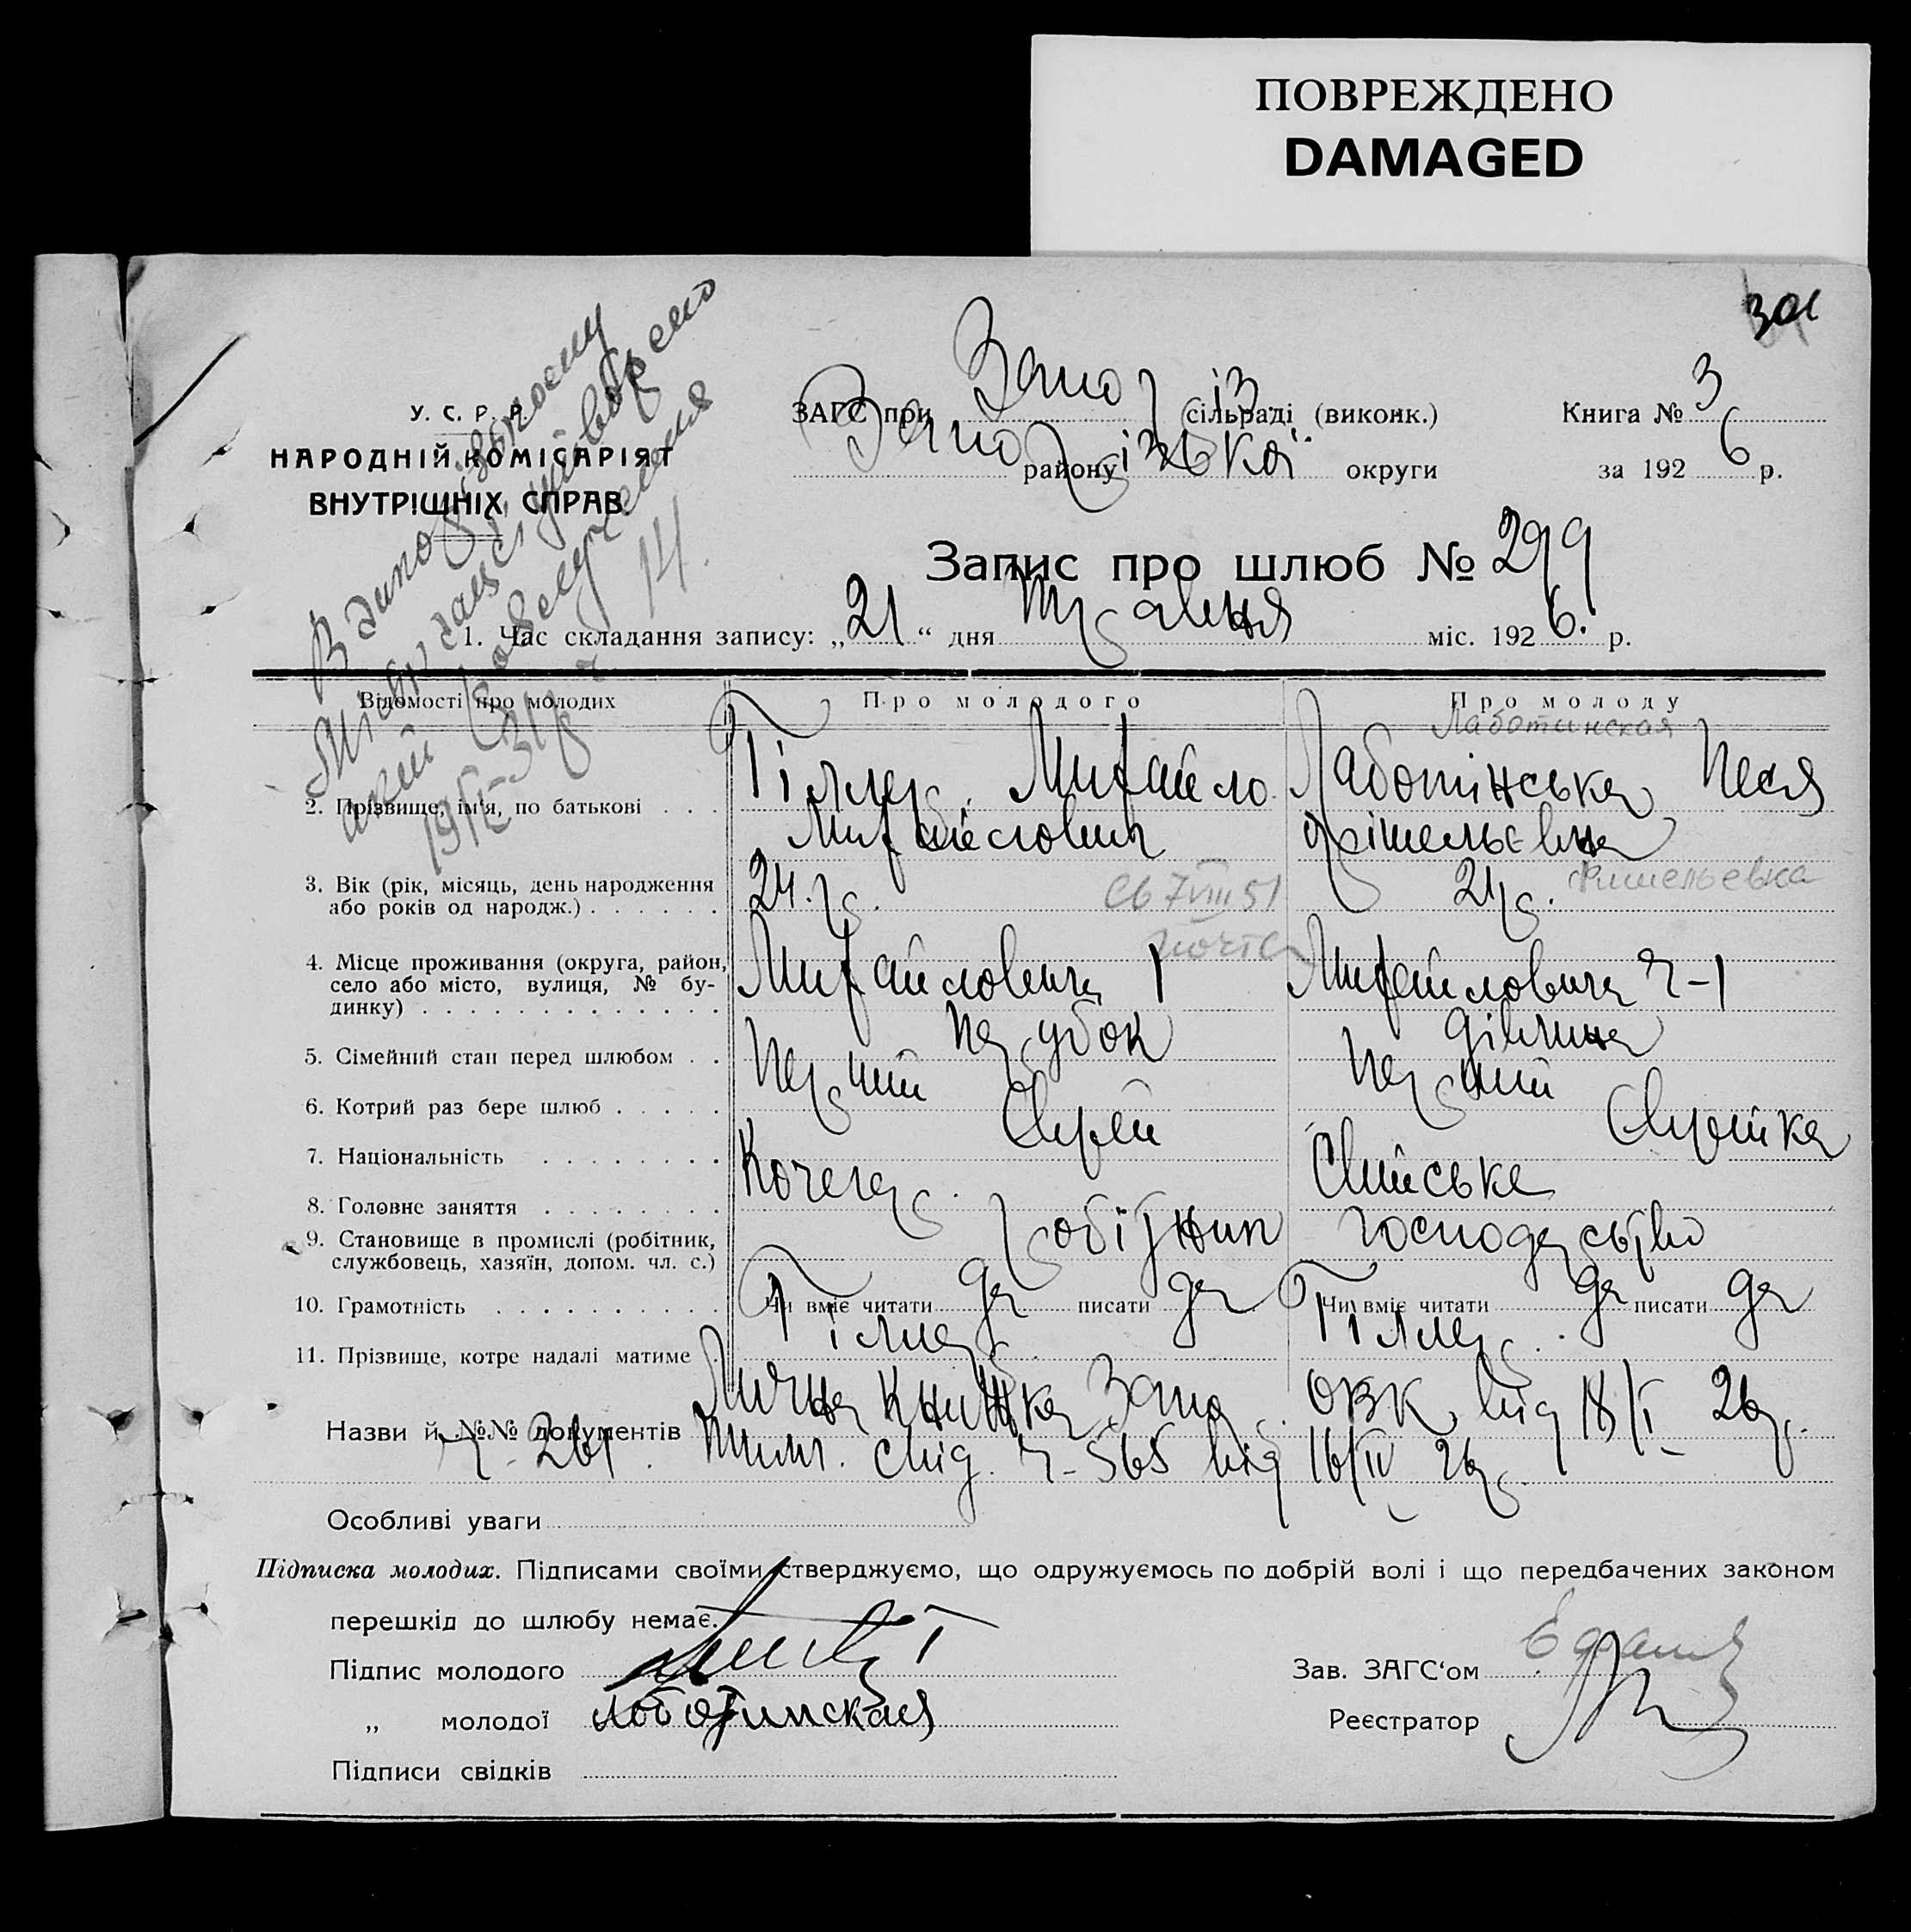 ПОВРЕЖДЕНО
DAMAGED
301
У. С. Р. Р.
НАРОДНІЙ КОМІСАРІЯТ
ВНУТРІШНІХ СПРАВ
ЗАГС при Запоріз. сільраді (виконк.) Книга № 3
Запорізької району округи за 1926 р.
Запис про шлюб № 299
1. Час складання запису: „21“ дня Травня міс. 1926. р.
Відомості про молодих Про молодого Про молоду
Лаботинская
2. Прізвище, ім'я, по батькові . . . Гіллер Михайло Лаботінська Песя
Михайлович Рішельєвна
3. Вік (рік, місяць, день народження
або років од народж.) . . . . . . 24.р. Св 7 VIII 51 21р. Ришельевна
4. Місце проживання (округа, район,
село або місто, вулиця, № бу-
динку) . . . . . . . . . . . . . Михайловича 1 Михайловича ч-1
5. Сімейний стан перед шлюбом . . Парубок Дівчина
6. Котрий раз бере шлюб . . . . . Перший Перший
7. Національність . . . . . . . . Єврей Єврейка
8. Головне заняття . . . . . . . . Кочегар.
9. Становище в промислі (робітник,
службовець, хазяїн, допом. чл. с.) робітник господарство
10. Грамотність . . . . . . . . . . Чи вміє читати да писати да Чи вміє читати да писати да
11. Прізвище, котре надалі матиме . Гіллер Гіллер.
Назви й №№ документів Лична книжка Запор. ОВК від 18/I 26р.
ч. 261. Тимч. свід. ч-565 від 16/IV 26р.
Особливі уваги
Підписка молодих. Підписами своїми стверджуємо, що одружуємось по добрій волі і що передбачених законом
перешкід до шлюбу немає.
Підпис молодого Зав. ЗАГС‘ом
„ молодої Лоботинская Реєстратор
Підписи свідків